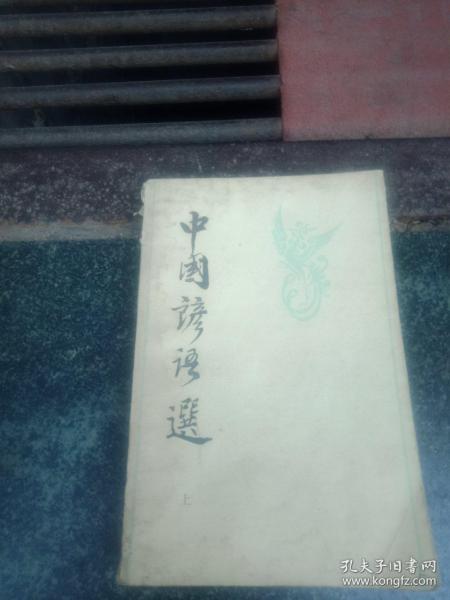 中國諺语選
上
孔夫子旧書网
www.kongfz.com